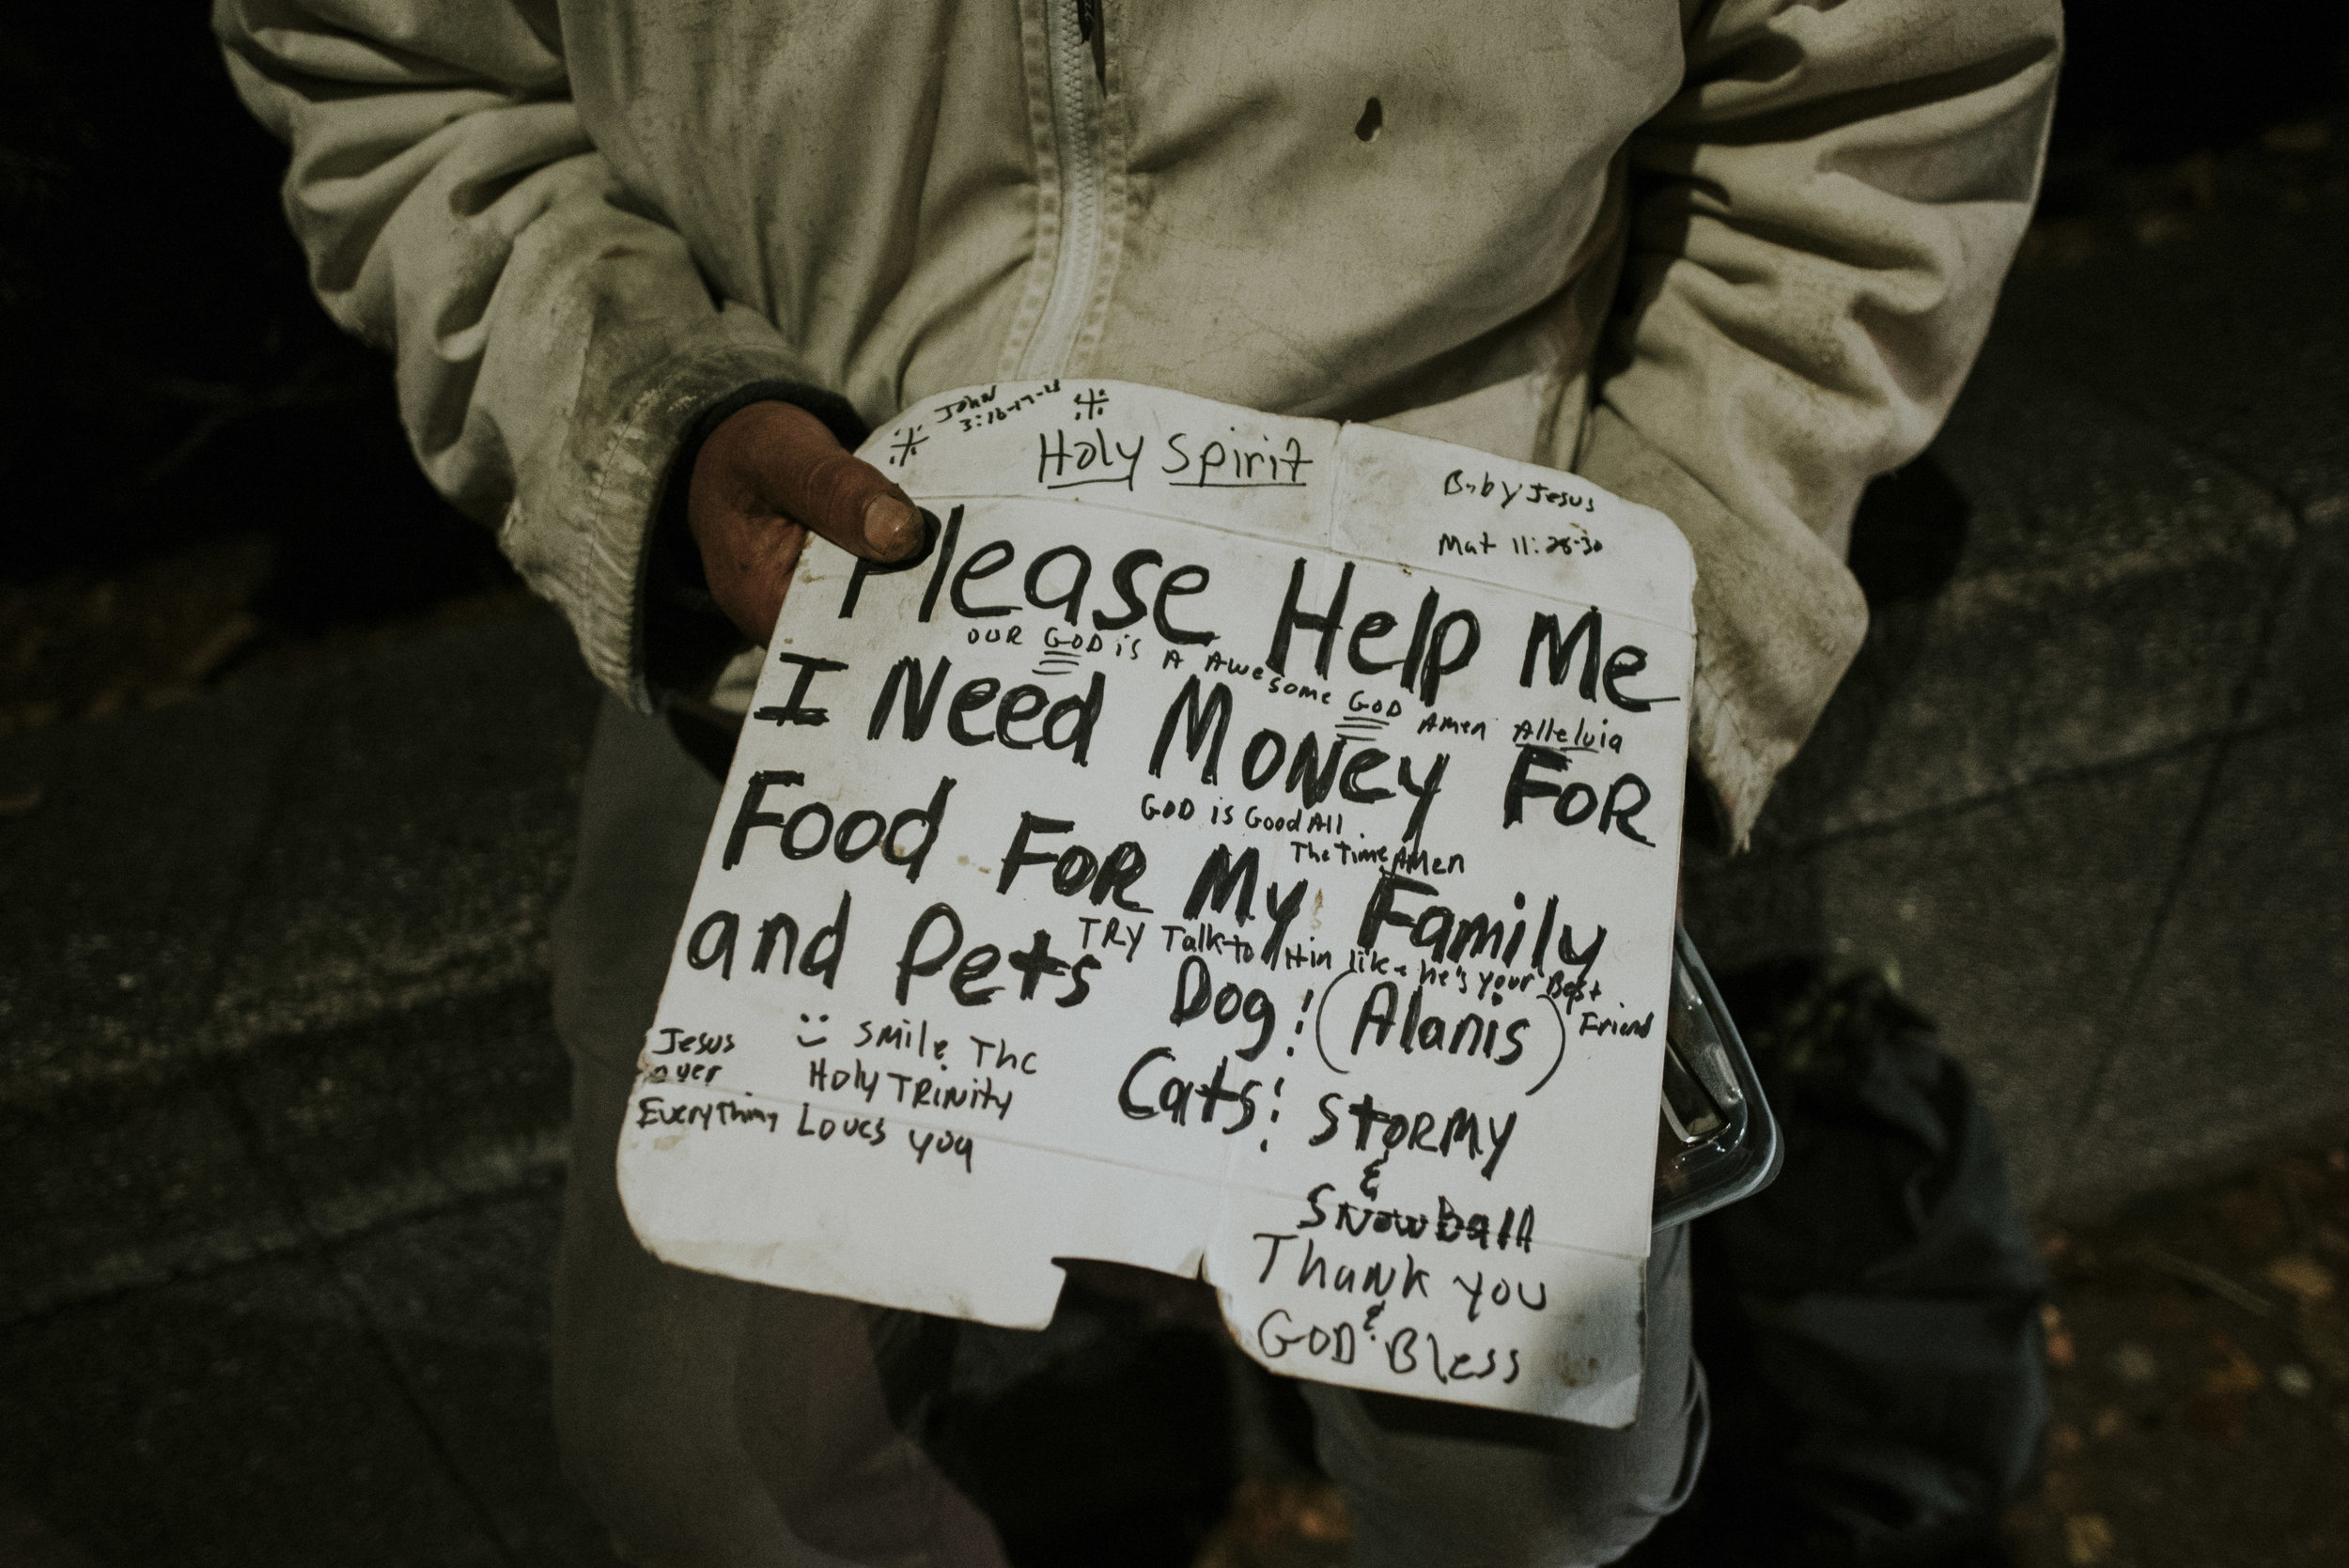 John
3:16-17-18
Holy Spirit
Baby Jesus
Mat 11:28-30
Please Help Me
OUR GOD is A Awesome GOD Amen Alleluia
I Need Money FOR
GOD is Good All
The Time Amen
Food FOR My Family
TRY Talk to Him like he's your Best
Friend
and Pets Dog: (Alanis)
Jesus
over
Everything
:) Smile The
Holy TRiNity
Loves you
Cats: STORMY
&
SNOWBall
Thank you
&
GOD Bless